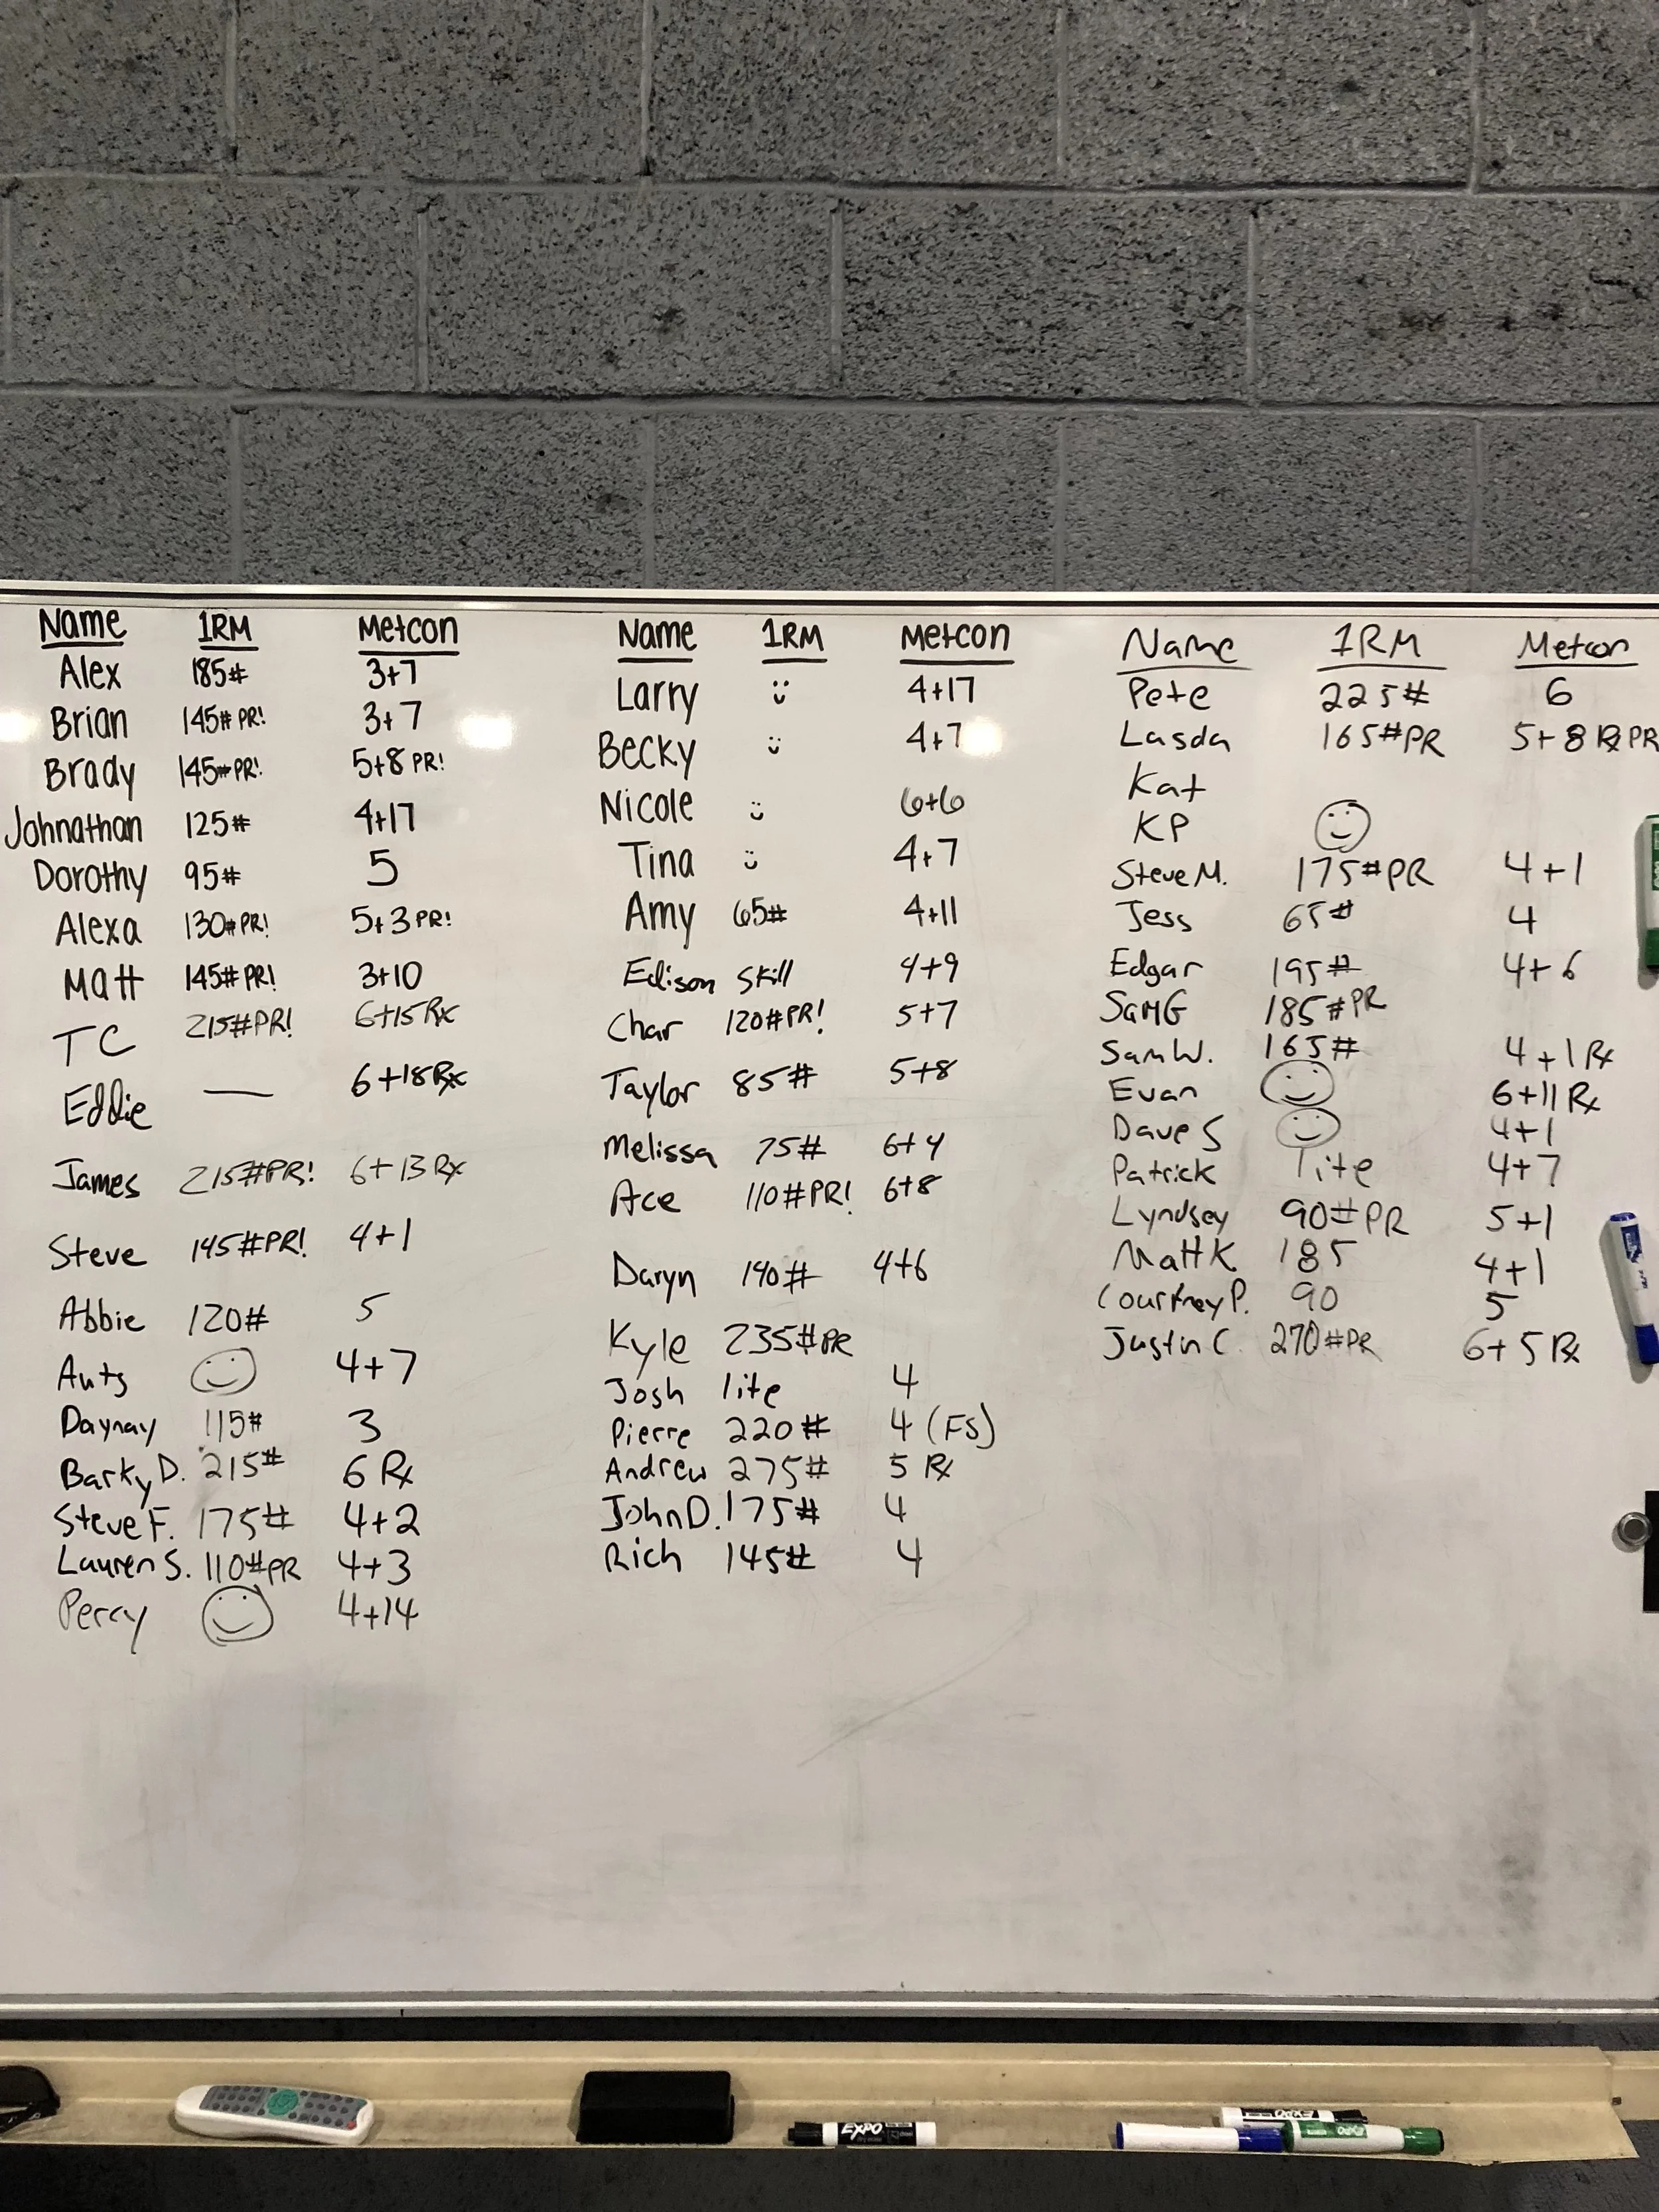 Name 1RM Metcon
Alex 185# 3+7
Brian 145# PR! 3+7
Brady 145# PR! 5+8 PR!
Johnathan 125# 4+17
Dorothy 95# 5
Alexa 130# PR! 5+3 PR!
Matt 145# PR! 3+10
TC 215# PR! 6+15 Rx
Eddie — 6+18 Rx
James 215# PR! 6+13 Rx
Steve 145# PR! 4+1
Abbie 120# 5
Auts 4+7
Daynay 115# 3
Barky D. 215# 6 Rx
Steve F. 175# 4+2
Lauren S. 110# PR 4+3
Percy 4+14
Name 1RM Metcon
Larry 4+17
Becky 4+7
Nicole 6+6
Tina 4+7
Amy 65# 4+11
Edison Skill 4+9
Char 120# PR! 5+7
Taylor 85# 5+8
Melissa 75# 6+4
Ace 110# PR! 6+8
Daryn 140# 4+6
Kyle 235# PR
Josh lite 4
Pierre 220# 4 (FS)
Andrew 275# 5 Rx
John D. 175# 4
Rich 145# 4
Name 1RM Metcon
Pete 225# 6
Lasda 165# PR 5+8 Rx PR
Kat
KP
Steve M. 175# PR 4+1
Jess 65# 4
Edgar 195# 4+6
Sam G 185# PR
Sam W. 165# 4+1 Rx
Evan 6+11 Rx
Dave S 4+1
Patrick lite 4+7
Lyndsey 90# PR 5+1
Matt K 185 4+1
Courtney P. 90 5
Justin C. 270# PR 6+5 Rx
EXPO
EXPO